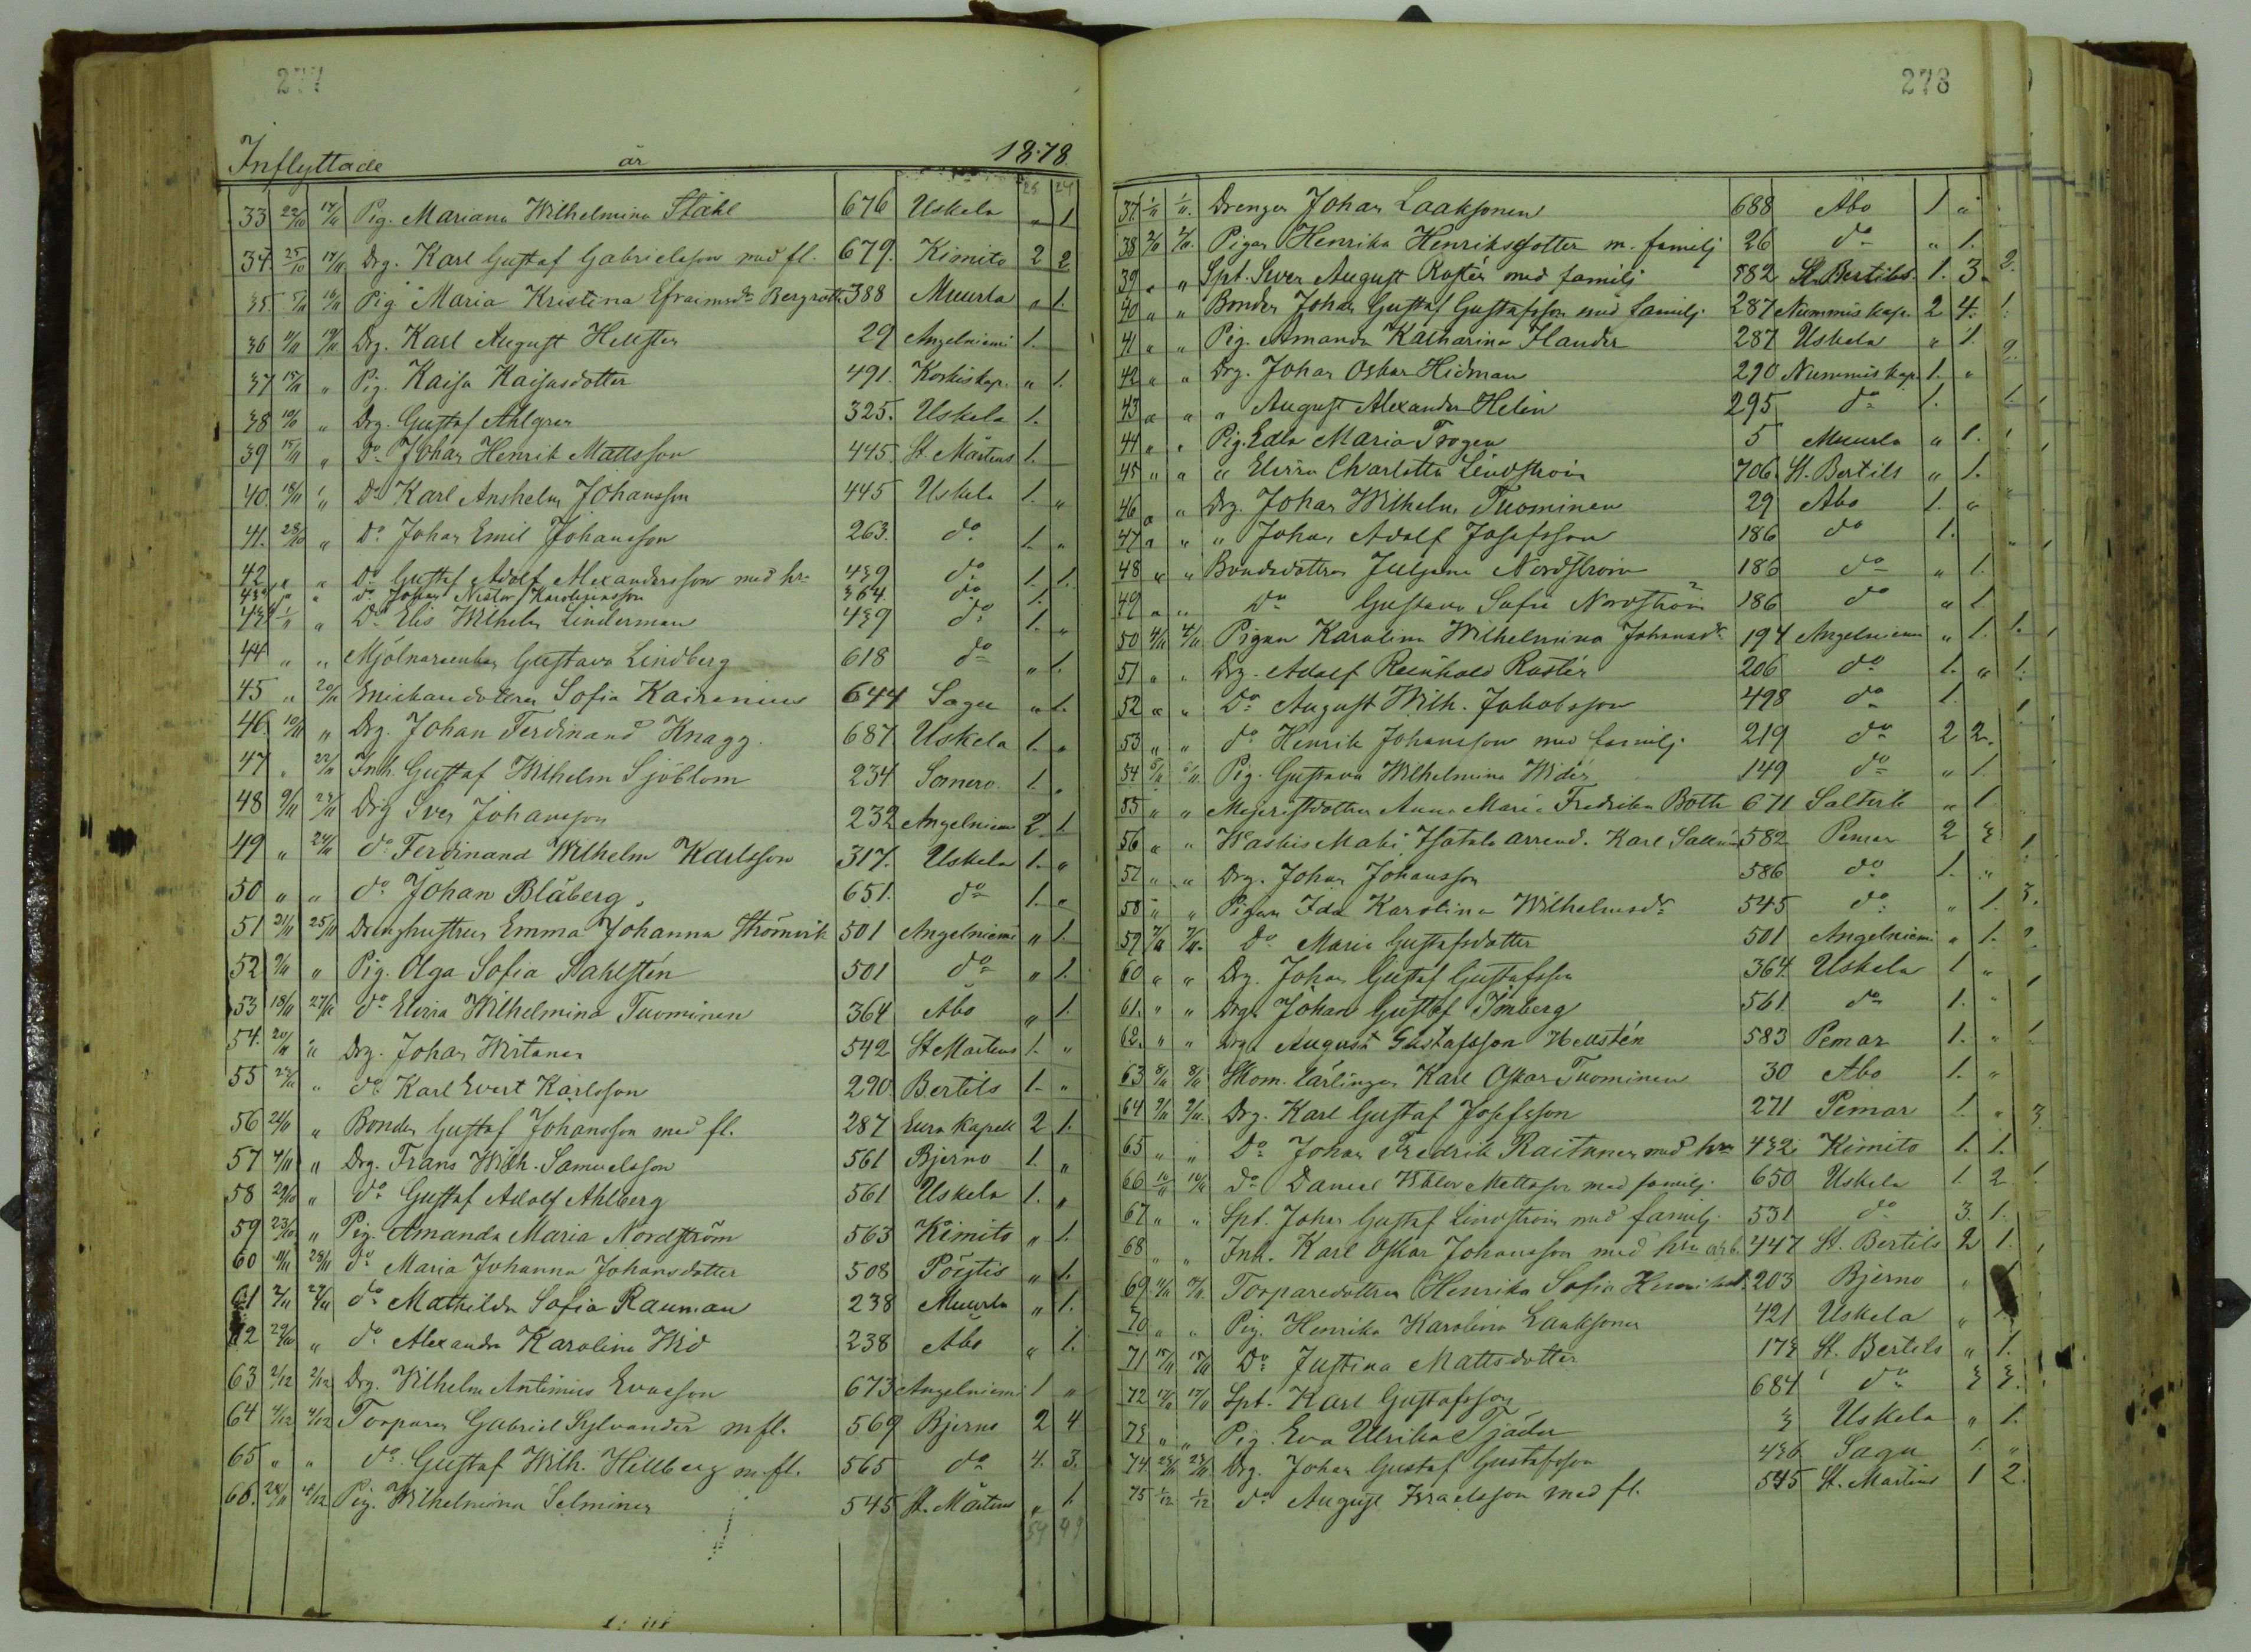 277
Inflyttade år 1878.
25 24
33 22/10 17/11 Pig. Mariana Wilhelmina Ståhl 676 Uskela „ 1.
34. 25/10 17/11 Drg. Karl Gustaf Gabrielsson med fl. 679. Kimito 2 2
35. 5/11 18/11 Pig. Maria Kristina Efraimsdr Bergroth 388 Muurla „ 1.
36 11/11 19/11 Drg. Karl August Hellsten 29 Angelniemi 1.
37 15/11 „ Pig. Kaisa Kaisasdotter 491. Koskis kap. „ 1.
38 10/11 „ Drg. Gustaf Ahlgren 325. Uskela 1.
39 15/11 „ Do Johan Henrik Mattsson 445. St. Mårtens 1.
40. 18/11 „ Do Karl Anshelm Johansson 445 Uskela 1. „
41. 28/10 „ Do Johan Emil Johansson 263. do 1. „
42 „ „ Do Gustaf Adolf Alexandersson med hr. 439 do 1. 1.
„ „ do Johan Nestor Karolinasson 364 do 1.
„ Do Elis Wilhelm Linderman 439 do 1. „
44 „ „ Mjölnareenkan Gustava Lindberg 618 do „ 1.
45 „ 20/11 Enickandottren Sofia Kairenius 644 Sagu „ 1.
46. 10/11 „ Drg. Johan Ferdinand Knagg. 687 Uskela 1. „
47 „ 22/11 Inh. Gustaf Wilhelm Sjöblom 234 Somero. 1. „
48 9/11 23/11 Drg Sven Johansson 232 Angelniemi 2. 1.
49 „ 24/11 do Ferdinand Wilhelm Karlsson 317. Uskela 1. „
50 „ „ do Johan Blåberg. 651. do 1. „
51 21/11 25/11 Drenghustrun Emma Johanna Strömvik 501 Angelniemi „ 1.
52 9/11 „ Pig. Olga Sofia Dahlstén 501 do „ 1.
53 18/11 27/11 do Elvira Wilhelmina Tuominen 364 Åbo „ 1.
54. 20/11 „ Drg. Johan Wirtanen 542 St Mårtens 1. „
55 22/11 „ do Karl Evert Karlsson 290 Bertils 1. „
56 21/11 „ Bonden Gustaf Johansson med fl. 287 Eura Kapell 2 1.
57 4/11 „ Drg. Frans Wilh. Samuelsson 561 Bjerno 1. „
58 29/10 „ do Gustaf Adolf Ahlberg 561 Uskela 1. „
59 23/10 „ Pig. Amanda Maria Nordström 563 Kimito „ 1.
60 11/11 28/11 do Maria Johanna Johansdotter 508 Pöytis „ 1.
61 2/11 29/11 do Mathilda Sofia Rauman 238 Muurla „ 1.
62 29/10 „ do Alexandra Karolina Wid 238 Åbo „ 1.
63 2/12 2/12 Drg. Wilhelm Antinius Evasson 673 Angelniemi 1 „
64 4/12 4/12 Torparen Gabriel Sylvander m fl. 569 Bjerno 2 4
65 „ „ do Gustaf Wilh. Hellberg m. fl. 565 do 4. 3.
66. 28/11 4/12 Pig. Wilhelmina Selminen 545 St. Mårtens „ 1
54 49
278
37 1/11 1/11. Drengen Johan Laaksonen 688 Åbo 1 „
38 2/11 2/11. Pigan Henrika Henriksdotter m. familj 26 do „ 1.
39 „ „ Spt. Sven August Rostén med familj 582 St. Bertils. 1. 3.
40 „ „ Bonden Johan Gustaf Gustafsson med familj. 287 Nummis kap. 2 4.
41 „ „ Pig. Amanda Katharina Flander 287 Uskela „ 1.
42 „ „ Drg. Johan Oskar Hidman 290 Nummis kap. 1. „
43 „ „ „ August Alexander Helin 295 do 1.
44 „ „ Pig. Edla Maria Trogen 5 Muurla „ 1.
45 „ „ „ Elvira Charlotta Lindström 706. St. Bertils „ 1.
46 „ „ Drg. Johan Wilhelm Tuominen 29 Åbo 1. „
47 „ „ „ Johan Adolf Josefsson 186 do 1.
48 „ „ Bondedottren Juljana Nordström 186 do „ 1.
49 „ „ Do Gustava Sofia Nordström 186 do „ 1.
50 4/11 4/11 Pigan Karolina Wilhelmina Johansdr 194 Angelniemi „ 1.
51 „ „ Drg. Adolf Reinhold Rostér 206 do 1. „
52 „ „ Do August Wilh. Jakobsson 498 do 1.
53 „ „ do Henrik Johansson med familj. 219 do 2 2.
54 5/11 5/11. Pig. Gustava Wilhelmina Widén 149 do „ 1.
55 „ „ Mejeristdottren Anna Maria Fredrika Both 671 Saltvik „ 1
56 „ „ Waskis Mäki Isotalo arrend. Karl Sallén 582 Pemar 2 3
57 „ „ Drg. Johan Johansson 586 do 1. „
58 „ „ Pigan Ida Karolina Wilhelmsdr 545 do „ 1.
59 7/11 7/11. Do Maria Gustafsdotter 501 Angelniemi „ 1.
60 „ „ Drg. Johan Gustaf Gustafsson 364. Uskela 1 „
61. „ „ Drg. Johan Gustaf Imberg 561. do 1. „
62. „ „ Drg. August Gustafsson Hellstén 583 Pemar 1. „
63 8/11 8/11 Skom. Lärlingen Karl Oskar Tuominen 30 Åbo 1. „
64 9/11 9/11. Drg. Karl Gustaf Josefsson 271 Pemar 1. „
65 „ „ Do Johan Fredrik Raitanen med hru 432 Kimito 1. 1.
66 10/11 10/11 Do Daniel Viktor Mattsson med familj. 650 Uskela 1. 2
67 „ „ Spt. Johan Gustaf Lindström med familj. 531 do 3. 1.
68 „ „ Inh. Karl Oskar Johansson med hru o. 1 b. 447 St. Bertils 2 1.
69 11/11 11/11. Torparedottren Henrika Sofia Henriksd. 203 Bjerno „
70 „ „ Pig. Henrika Karolina Laaksonen 421 Uskela „ 1.
71 15/11 15/11 Do Justina Mattsdotter 173 St. Bertils „ 1.
72 17/11 17/11 Spt. Karl Gustafsson 684 do 3 3.
73 „ „ Pig. Eva Ulrika Tjäder 3 Uskela „ 1.
74 23/11 23/11 Drg. Johan Gustaf Gustafsson 436 Sagu 1. „
75 1/12 1/12 do August Israelsson med fl. 545 St. Mårtens 1 2.